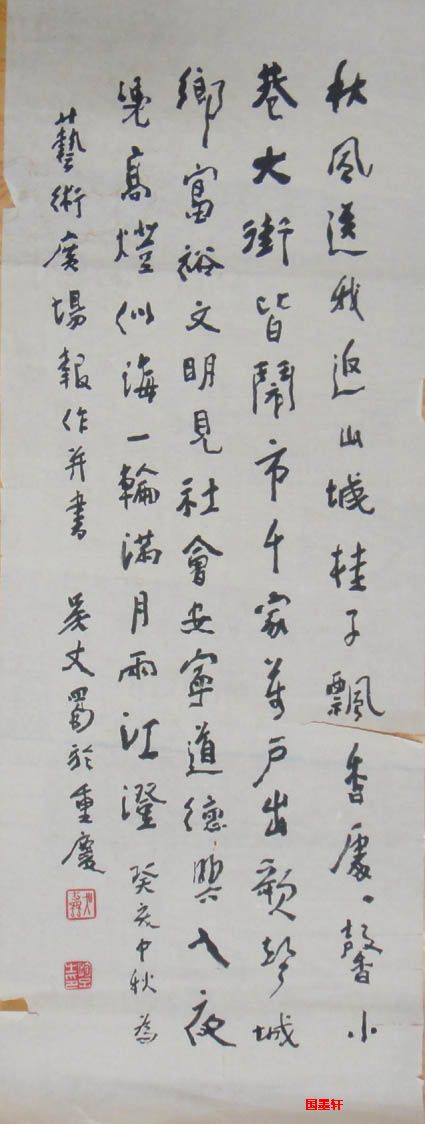 秋風送我返山城桂子飄香處〻馨小
巷大街皆鬧市千家萬戶出歌聲城
鄉富裕文明見社會安寧道德興入夜
覺高燈似海一輪滿月兩江澄 癸亥中秋為
藝術廣場報作并書 吳丈蜀於重慶
国墨轩